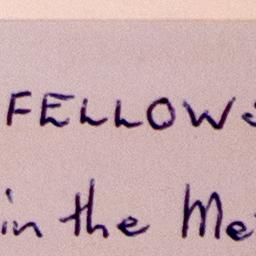 FELLOWS
in the Me